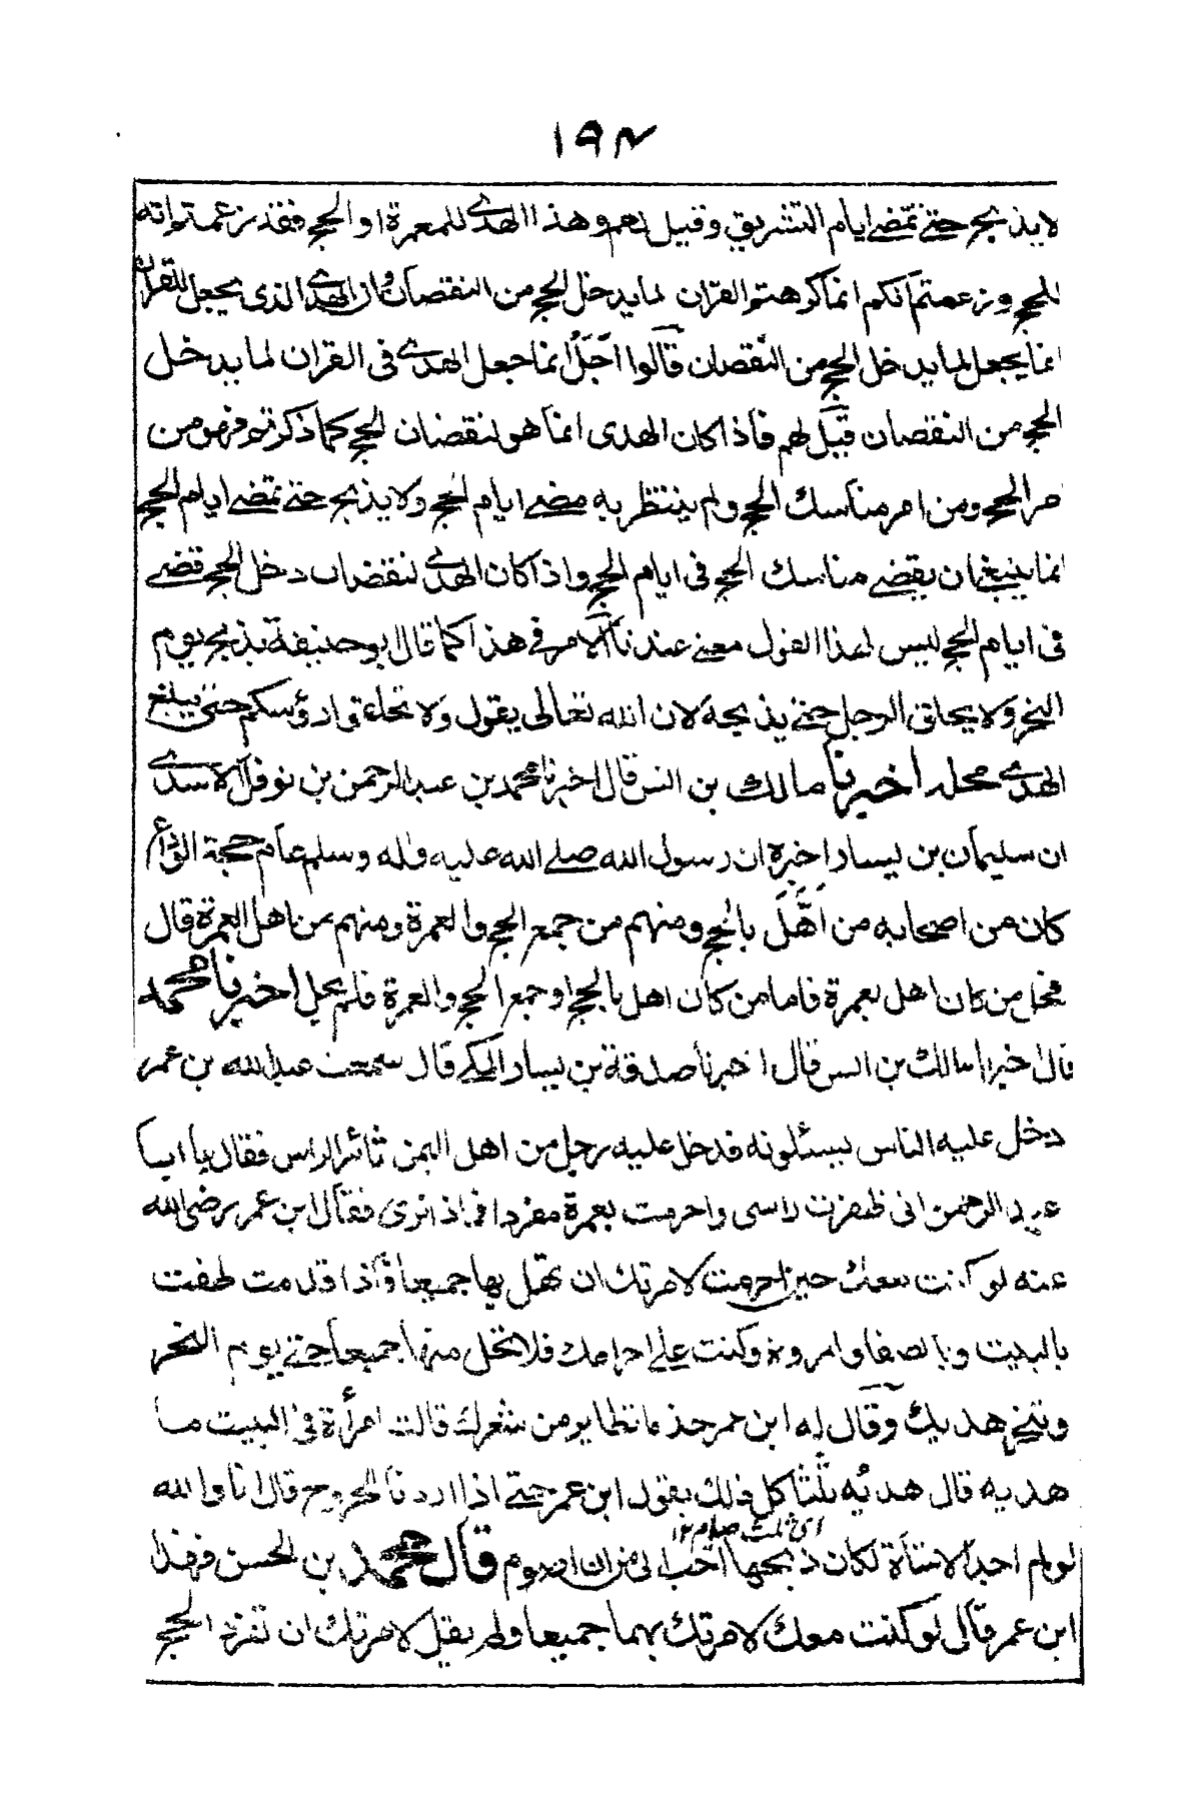 ١٩٤
لا يذبح حتى تمضى ايام التشريق وقيل لهم وهذا الهدى للمعرة او الحج فقد زعمتم انه
للحج وزعمتم انكم انما كرهتم القران لما يدخل الحج من النقصان وان الهدى الذى يجعل للقران
انما يجعل لما يدخل الحج من النقصان قالوا اجل انما جعل الهدى فى القران لما يدخل
الحج من النقصان قيل لهم فاذا كان الهدى انما هو لنقصان الحج كما ذكرتم فهو من
امر الحج ومن امر مناسك الحج ولم ينتظر به مضى ايام الحج ولا يذبح حتى تمضى ايام الحج
انما ينبغى ان يقضى مناسك الحج فى ايام الحج واذا كان الهدى لنقصان دخل الحج قضى
فى ايام الحج ليس لهذا القول معنى عندنا الامر فى هذا كما قال ابو حنيفة يذبح يوم
النحر ولا يحلق الرجل حتى يذبحه لان الله تعالى يقول ولا تحلقوا رؤسكم حتى يبلغ
الهدى محله اخبرنا مالك بن انس قال اخبرنا محمد بن عبد الرحمن بن نوفل الاسدى
ان سليمان بن يسار اخبره ان رسول الله صلى الله عليه وآله وسلم عام حجة الوداع
كان من اصحابه من اهل بالحج ومنهم من جمع الحج والعمرة ومنهم من اهل العمرة قال
فحل من كان اهل بعمرة فاما من كان اهل بالحج او جمع الحج والعمرة فلم يحل اخبرنا محمد
قال اخبرنا مالك بن انس قال اخبرنا صدقة بن يسار المكى قال سمعت عبد الله بن عمر
دخل عليه الناس يسئلونه فدخل عليه رجل من اهل اليمن ثائر الراس فقال يا ابا
عبد الرحمن انى ظفرت راسى واحرمت بعمرة مفردا فماذا ترى فقال ابن عمر رضى الله
عنه لو كنت معك حين احرمت لامرتك ان تهل بها جميعا فاذا قدمت طفت
بالبيت وبالصفا والمروة وكنت على احرامك فلا تحل منها جميعا حتى يوم النحر
وتنحر هديك وقال له ابن عمر خذ ما تطاير من شعرك قالت امرأة فى البيت ما
هديه قال هديه ثلثا كل ذلك يقول ابن عمر حتى اذا اردنا الخروج قال اما والله
اى ثلث صيام ١٢
لو لم اجد الا شاة لكان ذبحها احب الى من ان اصوم قال محمد بن الحسن فهذا
ابن عمر قال لو كنت معك لامرتك بهما جميعا ولم يقل لامرتك ان تفرد الحج